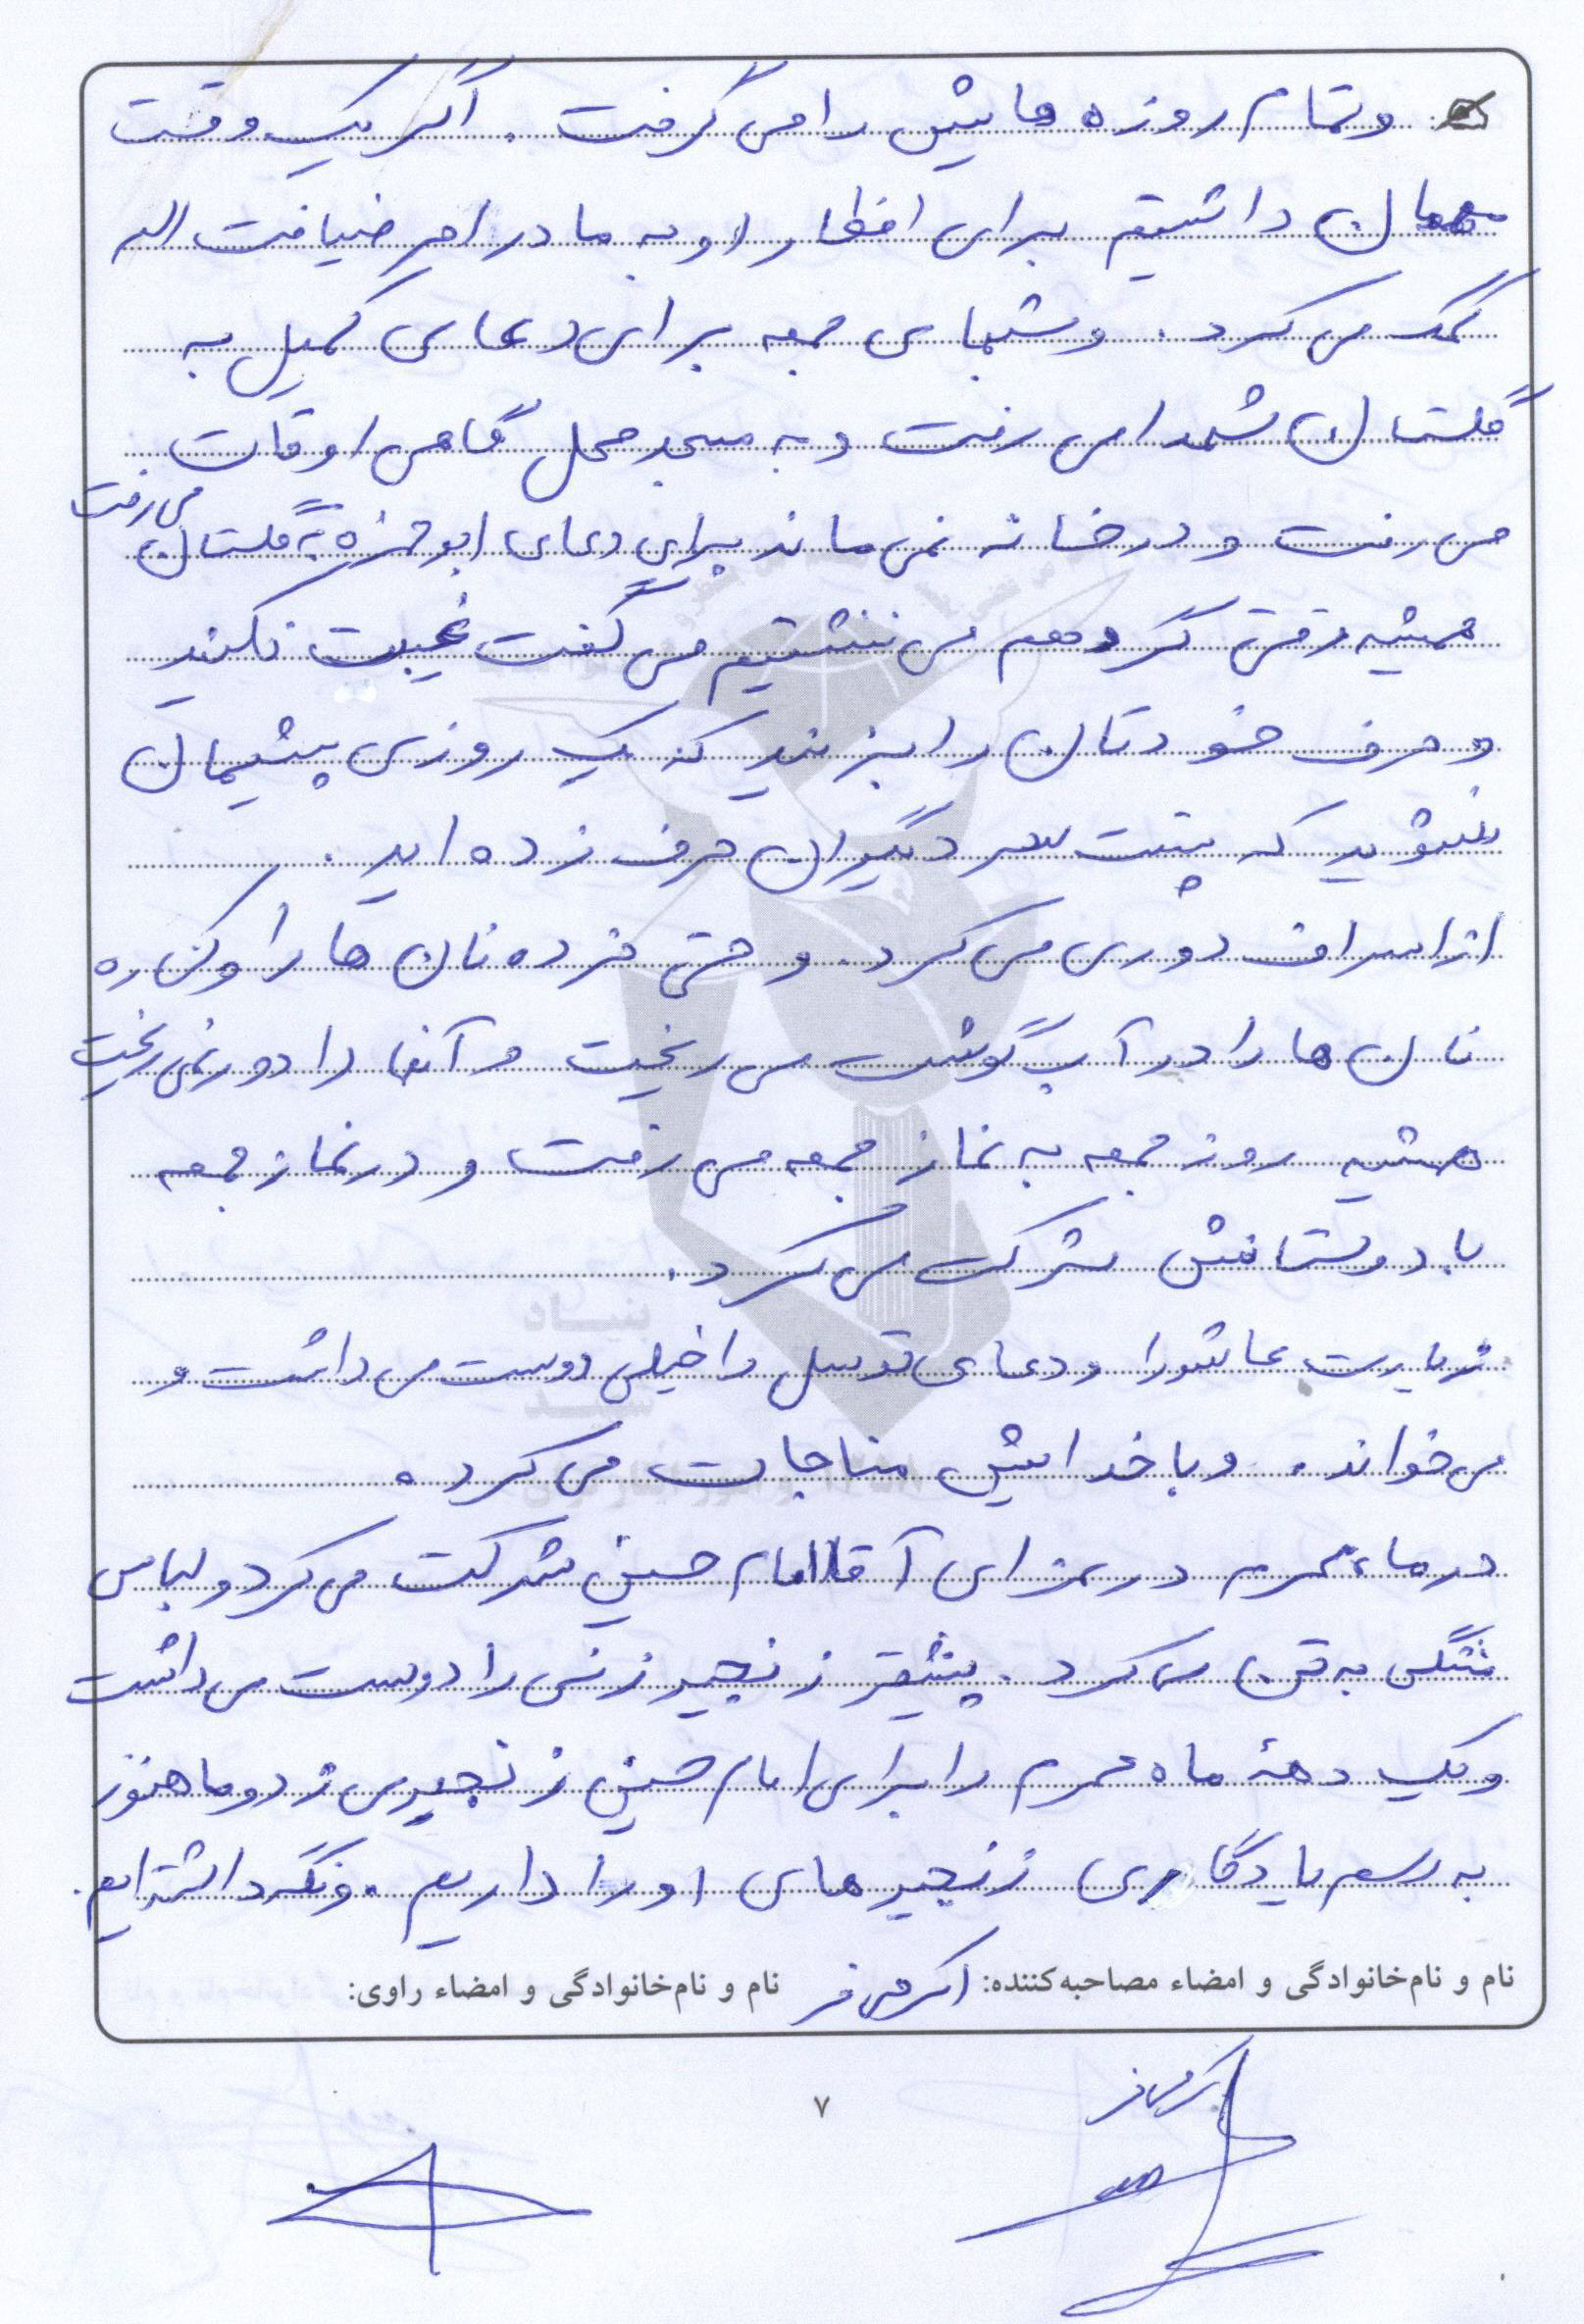 و تمام روزه هایش را می گرفت . اگر یک وقت
مهمان داشتیم برای افطار او به مادر امر ضیافت اله
کمک می کرد . و شبهای جمعه برای دعای کمیل به
گلستان شهدا می رفت و به مسجد محل گاهی اوقات .
می رفت و در خانه نمی ماند برای دعای ابوحمزه به گلستان می رفت
همیشه وقتی گرد هم می ننشتیم می گفت غیبت نکنید
و حرف خودتان را بزنید که یک روزی پشیمان
نشوید که پشت سر دیگران حرف زده اید .
از اسراف دوری می کرد . و حتی خرده نان ها را و کناره
نان ها را در آب گوشت می ریخت و آنها را دور نمی ریخت
همشیه روز جمعه به نماز جمعه می رفت و در نماز جمعه
با دوستانش شرکت می کرد .
زیارت عاشورا و دعای توسل را خیلی دوست می داشت و
می خواند . و با خدایش مناجات می کرد .
در ماه محرم در عزای آقا امام حسین شرکت می کرد و لباس
مشگی به تن می کرد . بیشتر زنجیر زنی را دوست می داشت
و یک دههٔ ماه محرم را برای امام حسین زنجیر می زد و ما هنوز
به رسم یادگاری زنجیرهای او را داریم . و نگه داشته ایم .
نام و نام‌خانوادگی و امضاء مصاحبه‌کننده: اکرمی فر نام و نام‌خانوادگی و امضاء راوی:
اکرمی فر
۷
بنیاد
شهید